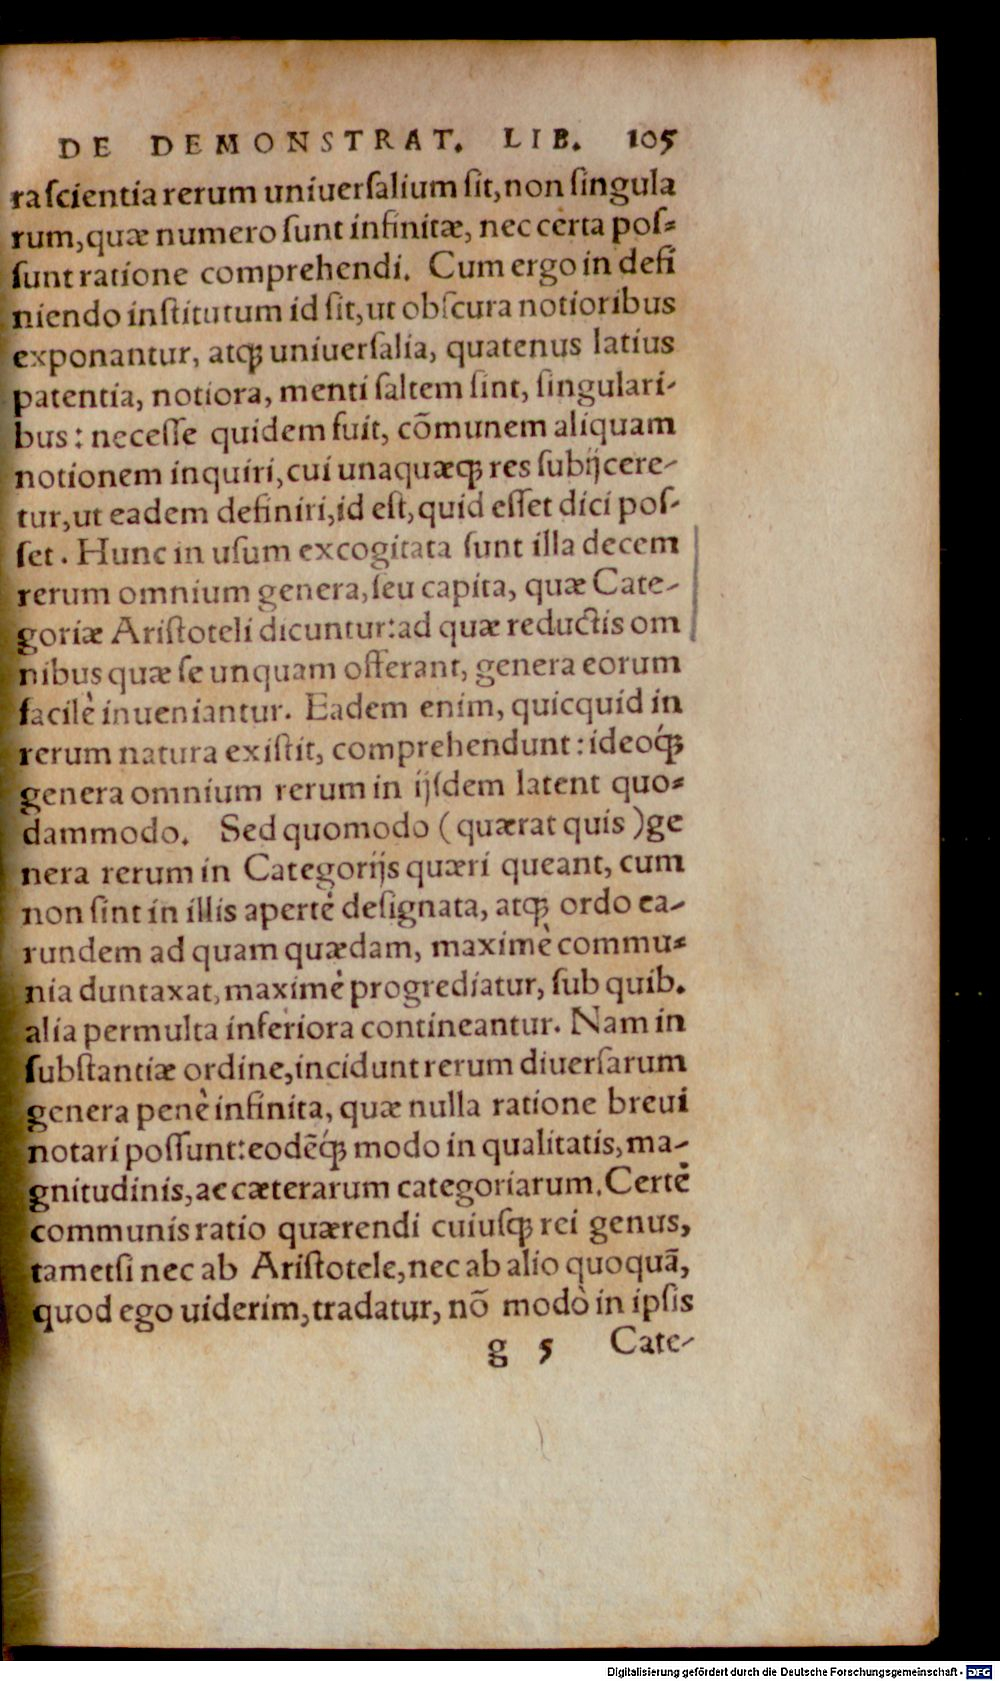 DE DEMONSTRAT. LIB. 105
ra ſcientia rerum uniuerſalium ſit, non ſingula
rum, quæ numero ſunt infinitæ, nec certa poſ=
ſunt ratione comprehendi. Cum ergo in defi
niendo inſtitutum id ſit, ut obſcura notioribus
exponantur, atq́ꝫ uniuerſalia, quatenus latius
patentia, notiora, menti ſaltem ſint, ſingulari-
bus: neceſſe quidem fuit, cõmunem aliquam
notionem inquiri, cui unaquæqꝫ res ſubijcere-
tur, ut eadem definiri, id eſt, quid eſſet dici poſ-
ſet. Hunc in uſum excogitata ſunt illa decem
rerum omnium genera, ſeu capita, quæ Cate-
goriæ Ariſtoteli dicuntur: ad quæ reductis om
nibus quæ ſe unquam offerant, genera eorum
facilè inueniantur. Eadem enim, quicquid in
rerum natura exiſtit, comprehendunt: ideoq́ꝫ
genera omnium rerum in ijſdem latent quo=
dammodo. Sed quomodo (quærat quis) ge
nera rerum in Categorijs quæri queant, cum
non ſint in illis apertè deſignata, atqꝫ ordo ea-
rundem ad quam quædam, maximè commu=
nia duntaxat, maximè progrediatur, ſub quib.
alia permulta inferiora contineantur. Nam in
ſubſtantiæ ordine, incidunt rerum diuerſarum
genera penè infinita, quæ nulla ratione breui
notari poſſunt: eodẽq́ꝫ modo in qualitatis, ma-
gnitudinis, ac cæterarum categoriarum. Certè
communis ratio quærendi cuiuſqꝫ rei genus,
tametſi nec ab Ariſtotele, nec ab alio quoquã,
quod ego uiderim, tradatur, nõ modò in ipſis
g 5 Cate-
Digitalisierung gefördert durch die Deutsche Forschungsgemeinschaft - DFG